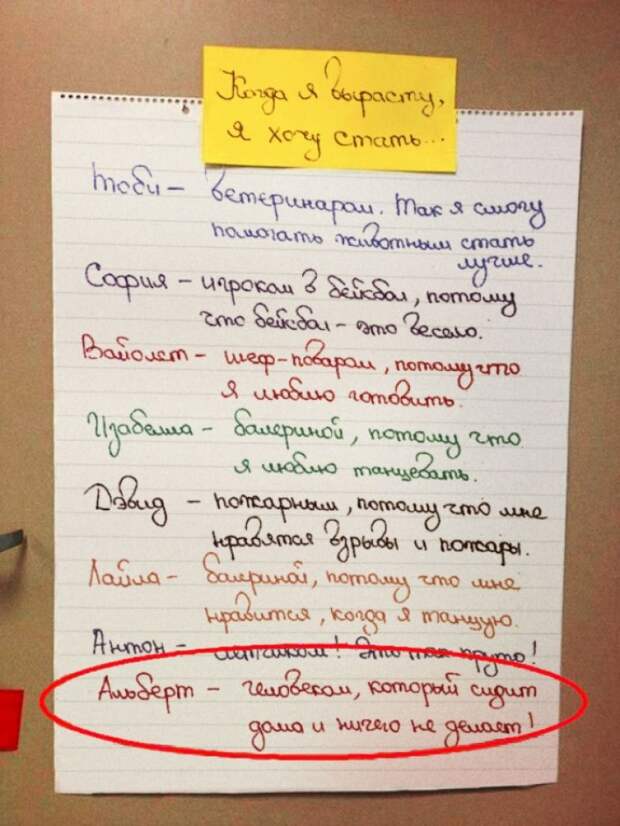 Когда я вырасту,
я хочу стать...
Тоби – ветеринаром. Так я смогу
помогать животным стать
лучше.
София – игроком в бейсбол, потому
что бейсбол – это весело.
Вайолет – шеф-поваром, потому что
я люблю готовить.
Изабелла – балериной, потому что
я люблю танцевать.
Дэвид – пожарным, потому что мне
нравятся взрывы и пожары.
Лайла – балериной, потому что мне
нравится, когда я танцую.
Антон – летчиком! Это так круто!
Альберт – человеком, который сидит
дома и ничего не делает!